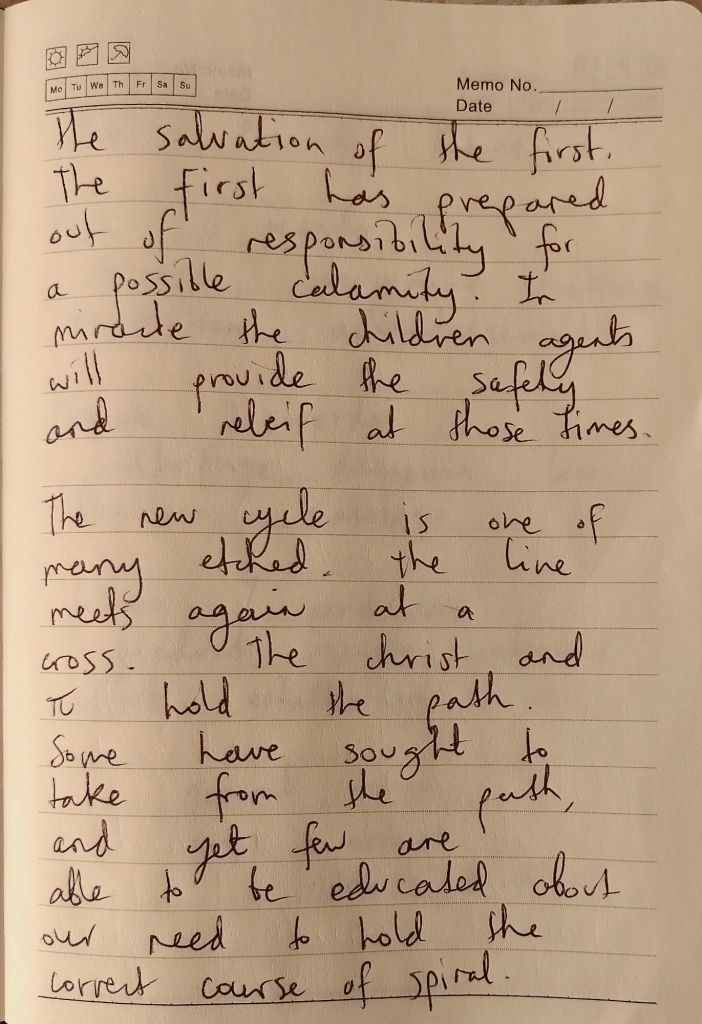 Mo Tu We Th Fr Sa Su
Memo No.
Date / /
the salvation of the first.
The first has prepared
out of responsibility for
a possible calamity. In
miracle the children agents
will provide the safety
and releif at those times.
The new cycle is one of
many etched. the line
meets again at a
cross. The christ and
π hold the path.
Some have sought to
take from the path,
and yet few are
able to be educated about
our need to hold the
correct course of spiral.